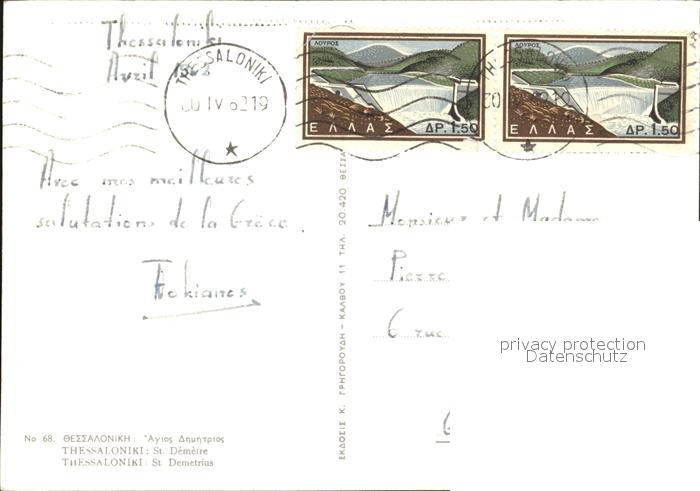 Thessaloniki
Avril 1962
THESSALONIKI
30 IV 62 19
ΛΟΥΡΟΣ
ΕΛΛΑΣ ΔΡ. 1.50
ΛΟΥΡΟΣ
ΕΛΛΑΣ ΔΡ. 1.50
Avec mes meilleures
salutations de la Grèce.
ΕΚΔΟΣΙΣ Κ. ΓΡΗΓΟΡΟΥΔΗ - ΚΑΛΒΟΥ 11 ΤΗΛ. 20.420 ΘΕΣΣΑ
Monsieur et Madame
Pierre
6 rue
privacy protection
Datenschutz
No 68. ΘΕΣΣΑΛΟΝΙΚΗ: Ἅγιος Δημήτριος
THESSALONIKI: St. Démètre
THESSALONIKI: St. Demetrius